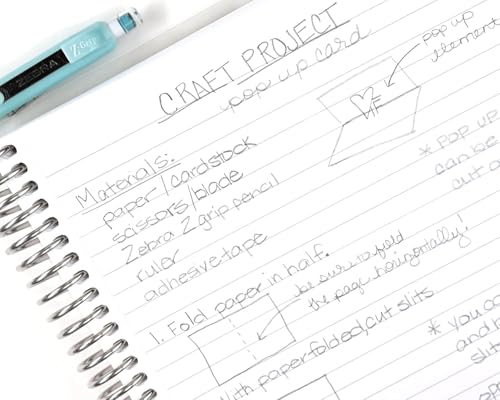 ZEBRA Z-Grip
CRAFT PROJECT
pop up card
pop up
element
Materials:
paper/cardstock
scissors/blade
Zebra Z grip pencil
ruler
adhesive tape
* POP UP
can be
cut
1. Fold paper in half.
be sure to fold
the page horizontally!
With paper folded, cut slits
* you
and
slits